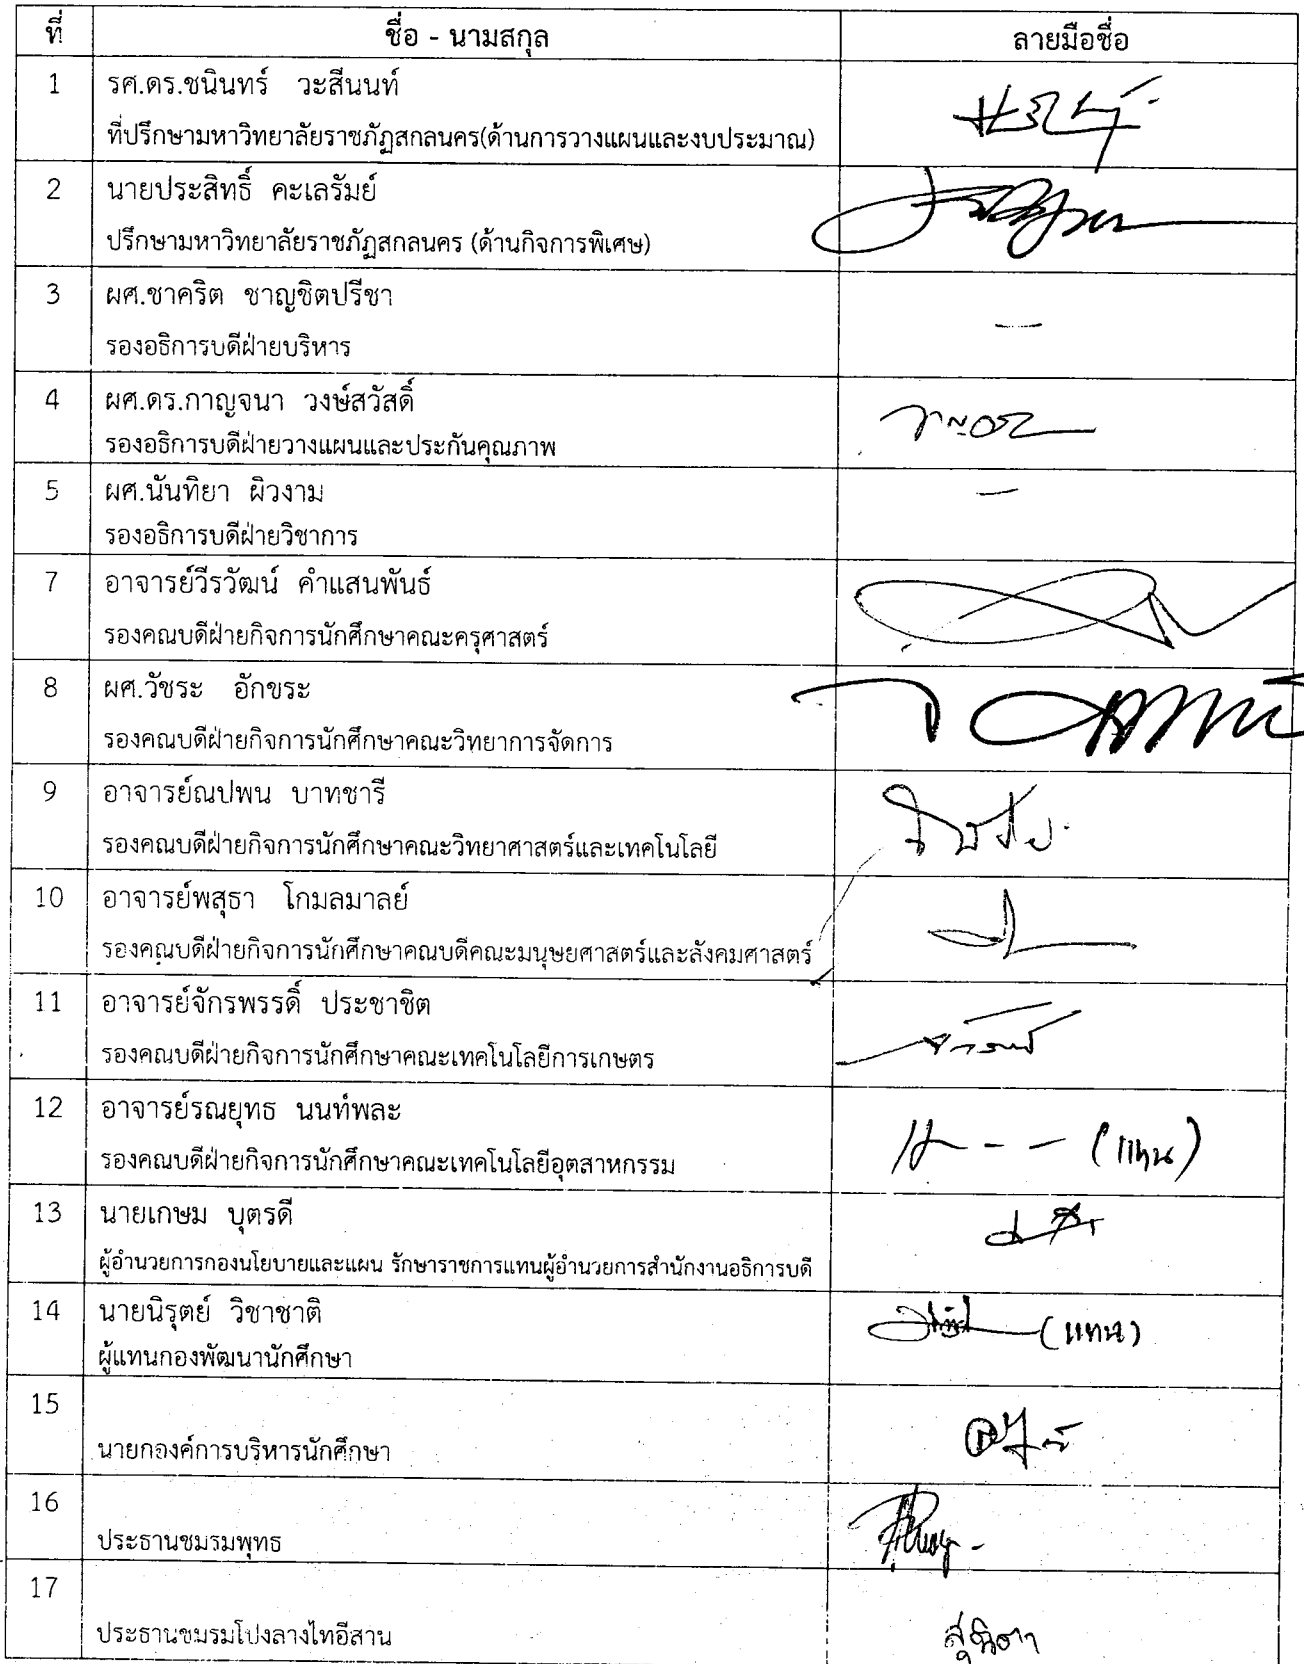 ที่ ชื่อ - นามสกุล ลายมือชื่อ
1 รศ.ดร.ชนินทร์ วะสีนนท์
ที่ปรึกษามหาวิทยาลัยราชภัฏสกลนคร(ด้านการวางแผนและงบประมาณ)
2 นายประสิทธิ์ คะเลรัมย์
ปรึกษามหาวิทยาลัยราชภัฏสกลนคร (ด้านกิจการพิเศษ)
3 ผศ.ชาคริต ชาญชิตปรีชา
รองอธิการบดีฝ่ายบริหาร —
4 ผศ.ดร.กาญจนา วงษ์สวัสดิ์
รองอธิการบดีฝ่ายวางแผนและประกันคุณภาพ
5 ผศ.นันทิยา ผิวงาม —
รองอธิการบดีฝ่ายวิชาการ
7 อาจารย์วีรวัฒน์ คำแสนพันธ์
รองคณบดีฝ่ายกิจการนักศึกษาคณะครุศาสตร์
8 ผศ.วัชระ อักขระ
รองคณบดีฝ่ายกิจการนักศึกษาคณะวิทยาการจัดการ
9 อาจารย์ณปพน บาทชารี
รองคณบดีฝ่ายกิจการนักศึกษาคณะวิทยาศาสตร์และเทคโนโลยี
10 อาจารย์พสุธา โกมลมาลย์
รองคณบดีฝ่ายกิจการนักศึกษาคณบดีคณะมนุษยศาสตร์และสังคมศาสตร์
11 อาจารย์จักรพรรดิ์ ประชาชิต
รองคณบดีฝ่ายกิจการนักศึกษาคณะเทคโนโลยีการเกษตร
12 อาจารย์รณยุทธ นนท์พละ
รองคณบดีฝ่ายกิจการนักศึกษาคณะเทคโนโลยีอุตสาหกรรม (แทน)
13 นายเกษม บุตรดี
ผู้อำนวยการกองนโยบายและแผน รักษาราชการแทนผู้อำนวยการสำนักงานอธิการบดี
14 นายนิรุตย์ วิชาชาติ (แทน)
ผู้แทนกองพัฒนานักศึกษา
15
นายกองค์การบริหารนักศึกษา
16
ประธานชมรมพุทธ
17
ประธานชมรมโปงลางไทอีสาน